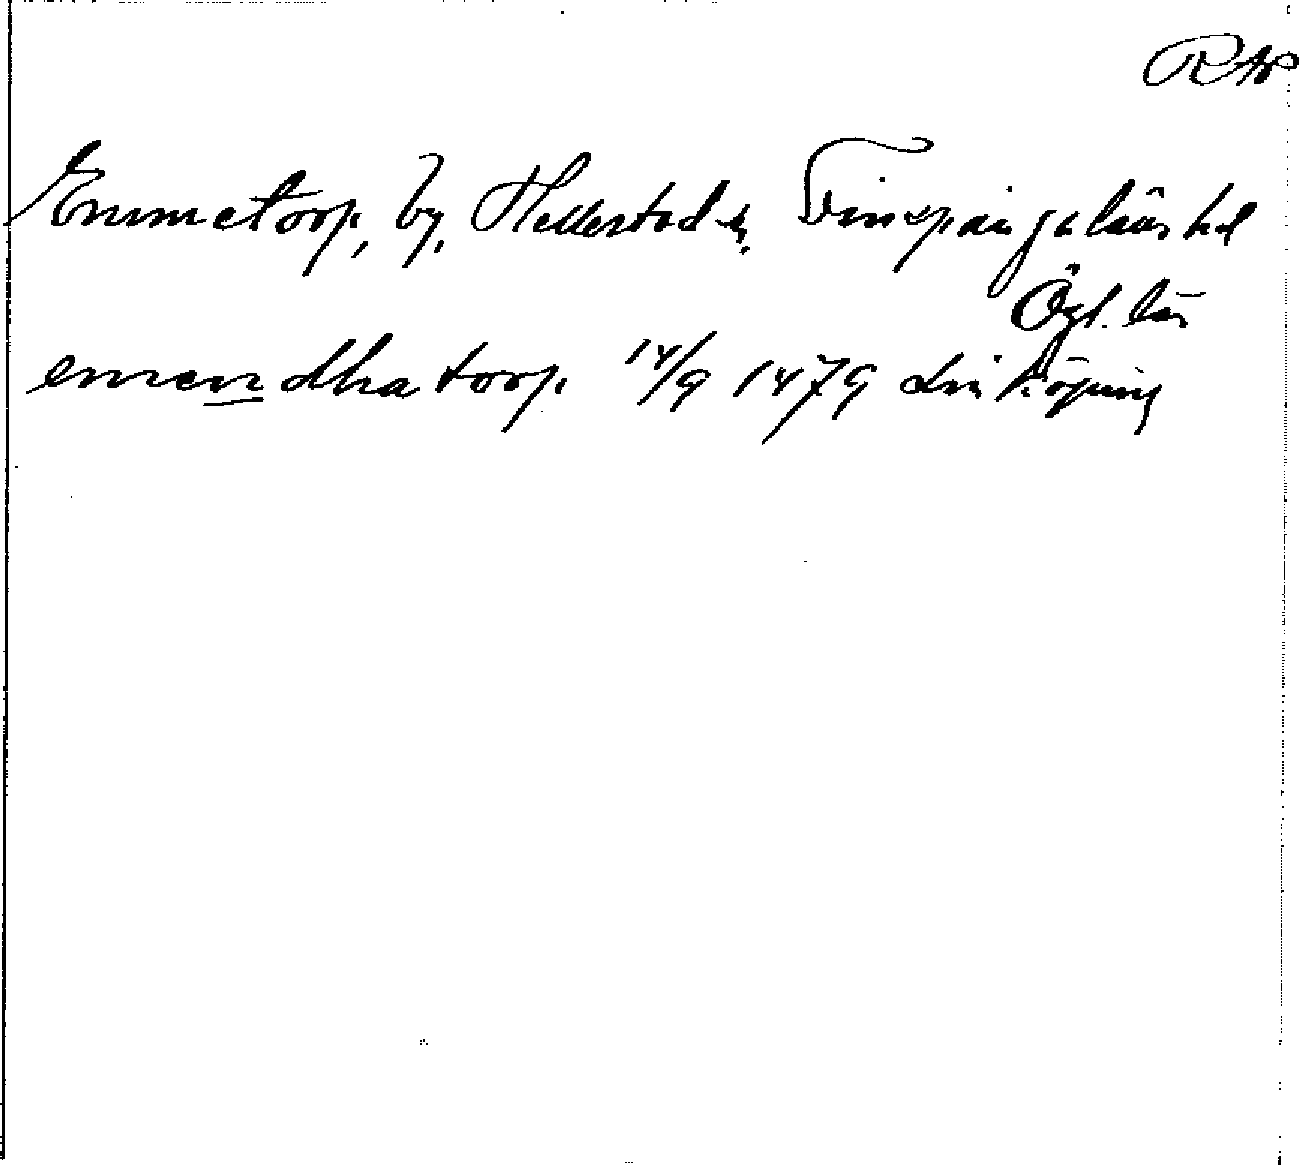 RAP
Emmetorp, by, Hellestads, Finspångaläns hd
Ögl. län
emendhatorp 14/9 1479 Linköping